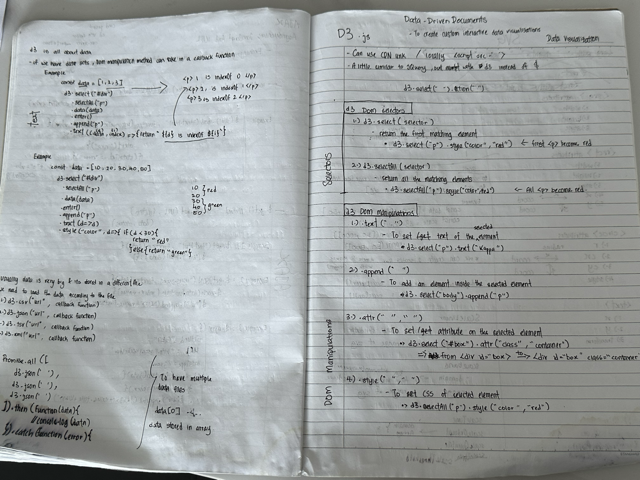 d3 is all about data
- if we have data sets, dom manipulation method can take in a callback function
Example
const data = [1,2,3]
d3.select("#div")
.selectAll("p")
.data(data)
.enter()
.append("p")
.text((data, index) => {return `${d} is indexOf ${i}`})
<p>1 is indexOf 0</p>
<p>2, is indexOf 1</p>
<p>3 is indexOf 2</p>
Text
Example
const data = [10, 20, 30, 40, 50]
d3.select("#div")
.selectAll("p")
.data(data)
.enter()
.append("p")
.text(d=>d)
.style("color", d){ if (d < 30){
return "red"
}else{return "green"}
10
20
30
40
50
red
green
Usually data is very big & its stored in a different file
need to load the data according to the file
d3.csv("url", callback function)
d3.json("url", callback function)
d3.tsv("url", callback function)
d3.xml("url", callback function)
Promise.all([
d3.json(" "),
d3.json(" "),
d3.json(" "),
]).then(function(data){
console.log(data)
}).catch(function(error){
To have multiple
data files
data[0]
data stored in array
Data-Driven Documents
D3.js
- To create custom interactive data visualisations
Data Visualisation
- Can use CDN link / locally
- A little similar to jQuery, but except with d3 instead of $
d3.select(" ").action(" ")
d3 Dom Selectors
1) d3.select(selector)
return the first matching element
• d3.select("p").style("color", "red") ← first <p> become red
2) d3.selectAll(selector)
- return all the matching elements
• d3.selectAll("p").style("color","red") ← All <p> become red
Selectors
d3 Dom Manipulations
1) .text(" ")
selected
- To set/get text of the element
• d3.select("p").text("Kappa")
2) .append(" ")
- To add an element inside the selected element
• d3.select("body").append("p")
3) .attr(" ", " ")
- To set/get attribute on the selected element
d3.select("#box").attr("class", "container")
=> from <div id="box"> to <div id="box" class="container"
4) .style(" ", " ")
- To set CSS of selected element
d3.selectAll("p").style("color", "red")
DOM Manipulations